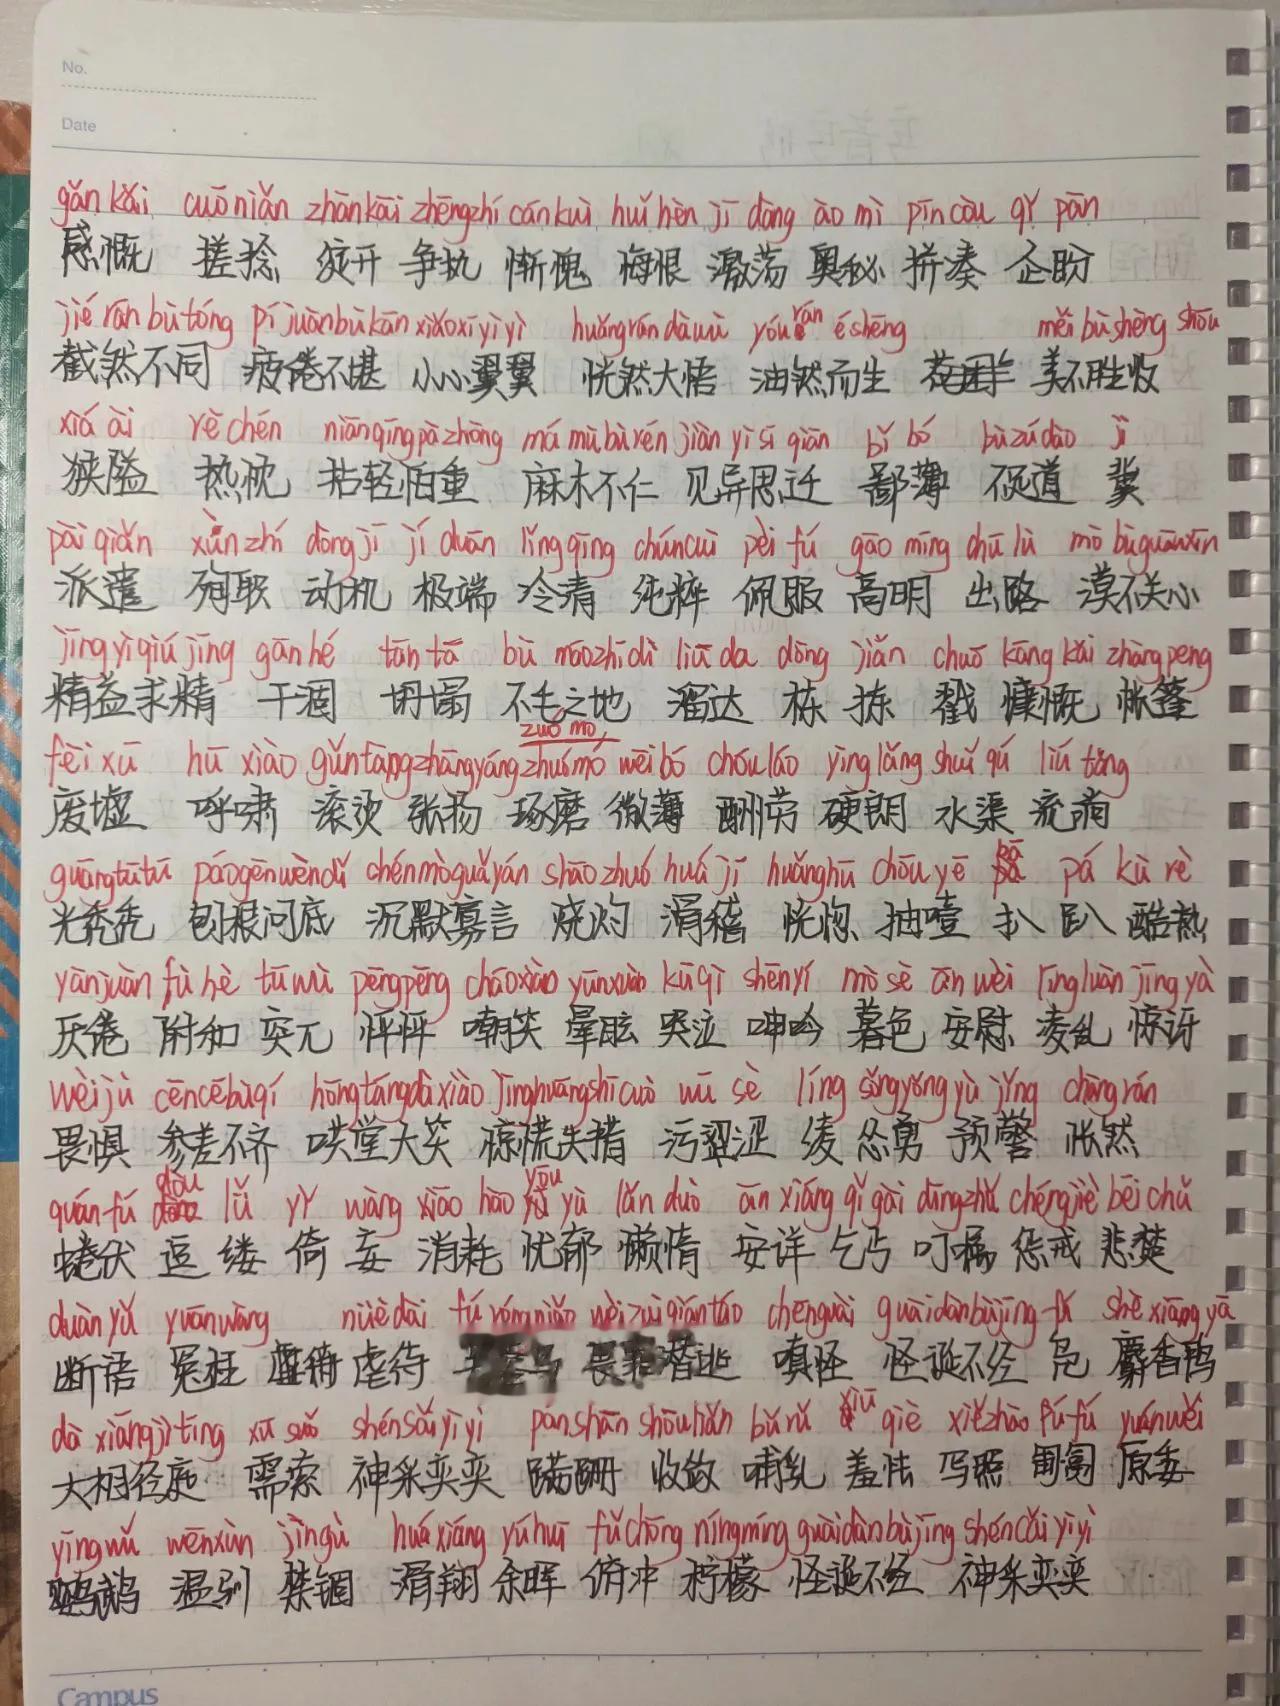 No.
Date
gǎn kǎi cuō niǎn zhàn kāi zhēng zhí cán kuì huǐ hèn jī dàng ào mì pīn còu qǐ pàn
感慨 搓捻 绽开 争执 惭愧 悔恨 激荡 奥秘 拼凑 企盼
jié rán bù tóng pí juàn bù kān xiǎo xī yì yì huǎng rán dà wù yóu rán ér shēng měi bù shèng shōu
截然不同 疲倦不堪 小心翼翼 恍然大悟 油然而生 美不胜收
xiá ài rè chén niān qīng pà zhòng má mù bù rén jiàn yì sī qiān bǐ bó bù zú dào jì
狭隘 热忱 拈轻怕重 麻木不仁 见异思迁 鄙薄 不足道 冀
pài qiǎn xùn zhí dòng jī jí duān lěng qīng chún cuì pèi fú gāo míng chū lù mò bù guān xīn
派遣 殉职 动机 极端 冷清 纯粹 佩服 高明 出路 漠不关心
jīng yì qiú jīng gān hé tān tā bù máo zhī dì liū da dòng jiǎn chuō kāng kǎi zhàng peng
精益求精 干涸 坍塌 不毛之地 溜达 栋 拣 戳 慷慨 帐篷
zuó mó
fèi xū hū xiào gǔn tàng zhāng yáng zhuó mó wēi bó chóu láo yìng lǎng shuǐ qú liú tǎng
废墟 呼啸 滚烫 张扬 琢磨 微薄 酬劳 硬朗 水渠 流淌
guāng tū tū páo gēn wèn dǐ chén mò guǎ yán shāo zhuó huá jī huǎng hū chōu yē bā pá kù rè
光秃秃 刨根问底 沉默寡言 烧灼 滑稽 恍惚 抽噎 扒 趴 酷热
yàn juàn fù hè tū wù pēng pēng cháo xiào yūn xuàn kū qì shēn yí mò sè ān wèi líng luàn jīng yà
厌倦 附和 突兀 怦怦 嘲笑 晕眩 哭泣 呻吟 暮色 安慰 凌乱 惊讶
wèi jù cēn cē bù qí hōng táng dà xiào jīng huāng shī cuò wū sè líng sǒng yǒng yù jǐng chàng rán
畏惧 参差不齐 哄堂大笑 惊慌失措 污涩 绫 怂勇 预警 怅然
quán fú dòu lǚ yǐ wàng xiāo hào yōu yù lǎn duò ān xiáng qǐ gài dīng zhǔ chéng jiè bēi chǔ
蜷伏 逗 缕 倚 妄 消耗 忧郁 懒惰 安详 乞丐 叮嘱 惩戒 悲楚
duàn yǔ yuān wàng nüè dài fú róng niǎo wèi zuì qián táo chēn guài guài dàn bù jīng fú shè xiāng yā
断语 冤枉 虐待 畏罪潜逃 嗔怪 怪诞不经 凫 麝香鸭
dà xiāng jìng tíng xū suǒ shén sǎi yì yì pán shān shōu liǎn bǔ rǔ xiū qiè xiě zhào fú fú yuán wěi
大相径庭 需索 神采奕奕 蹒跚 收敛 哺乳 羞怯 写照 匍匐 原委
yīng wǔ wēn xùn jìn gù huá xiáng yú huī fǔ chōng níng míng guài dàn bù jīng shén cǎi yì yì
鹦鹉 温驯 禁锢 滑翔 余晖 俯冲 柠檬 怪诞不经 神采奕奕
Campus